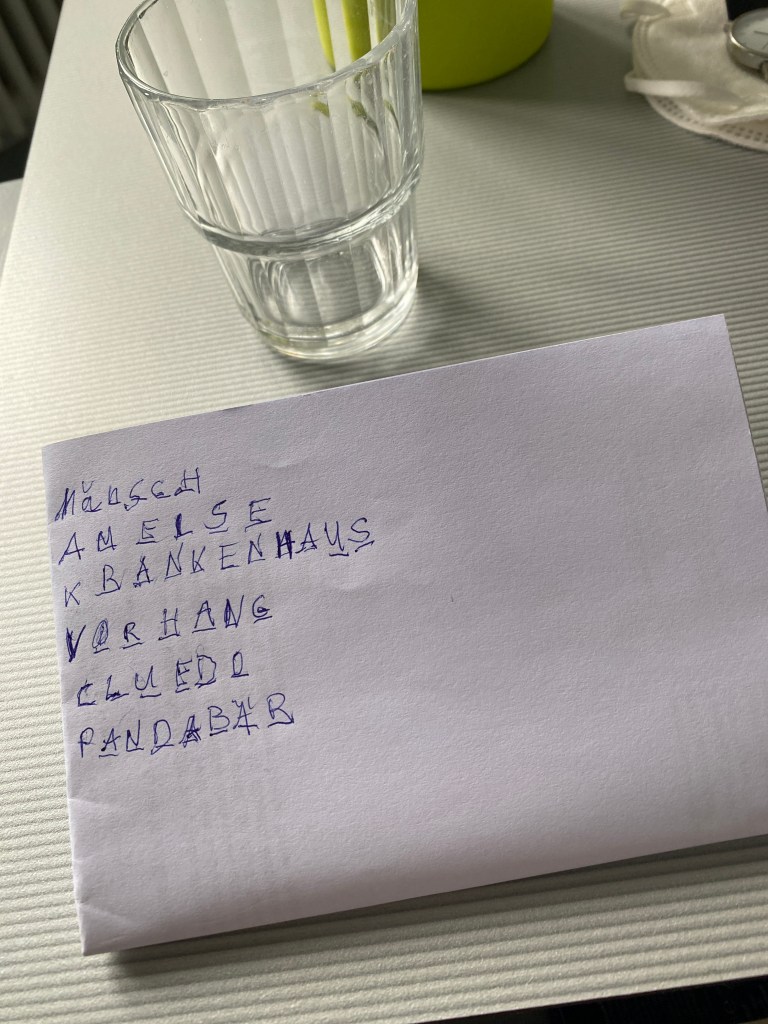 MäUSCH
AMELSE
KRANKENHAUS
VORHANG
CLUEDO
PANDABÄR